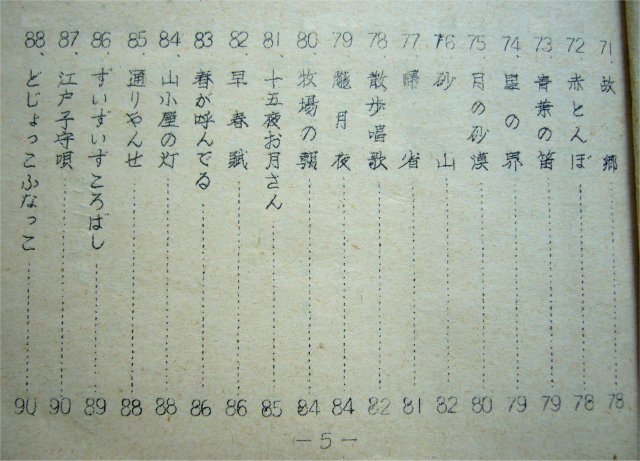 71. 故郷 78
72. 赤とんぼ 78
73. 青葉の笛 79
74. 星の界 79
75. 月の砂漠 80
76. 砂山 82
77. 帰省 81
78. 散歩唱歌 82
79. 朧月夜 84
80. 牧場の朝 84
81. 十五夜お月さん 85
82. 早春賦 86
83. 春が呼んでる 86
84. 山小屋の灯 88
85. 通りゃんせ 88
86. ずいずいずころばし 89
87. 江戸子守唄 90
88. どじょっこふなっこ 90
—5—